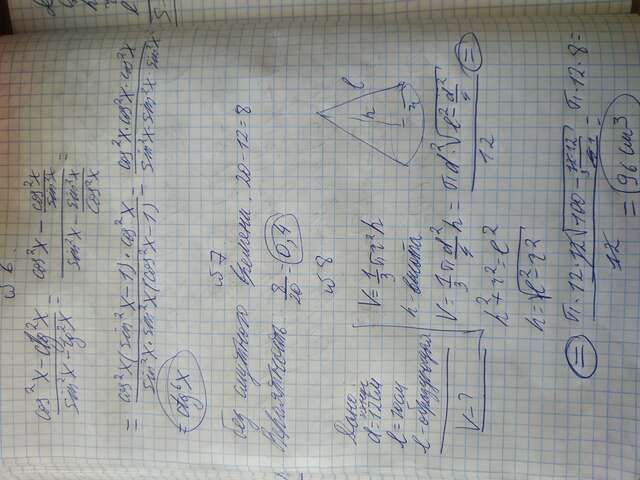 №6
cos²x - ctg²x / sin²x - tg²x = cos²x - cos²x/sin²x / sin²x - sin²x/cos²x =
= cos²x(sin²x-1)·cos²x / sin²x·sin²x(cos²x-1) = cos²x·cos²x·cos²x / sin²x·sin²x·sin²x
= ctg⁶x
№7
без спутного времени: 20-12=8
Вероятность 8/20 = 0,4
№8
Дано
d=12см
l=10см
l-образующая
V-?
V=1/3 πr²h
h-высота
V=1/3 π d²/4 h = πd²·√(l²-d²/4) / 12 =
h²+r²=l²
h=√(l²-r²)
l
h
r
= π·12·12√(100-12·12/4) / 12 = π·12·8=
= 96 см³